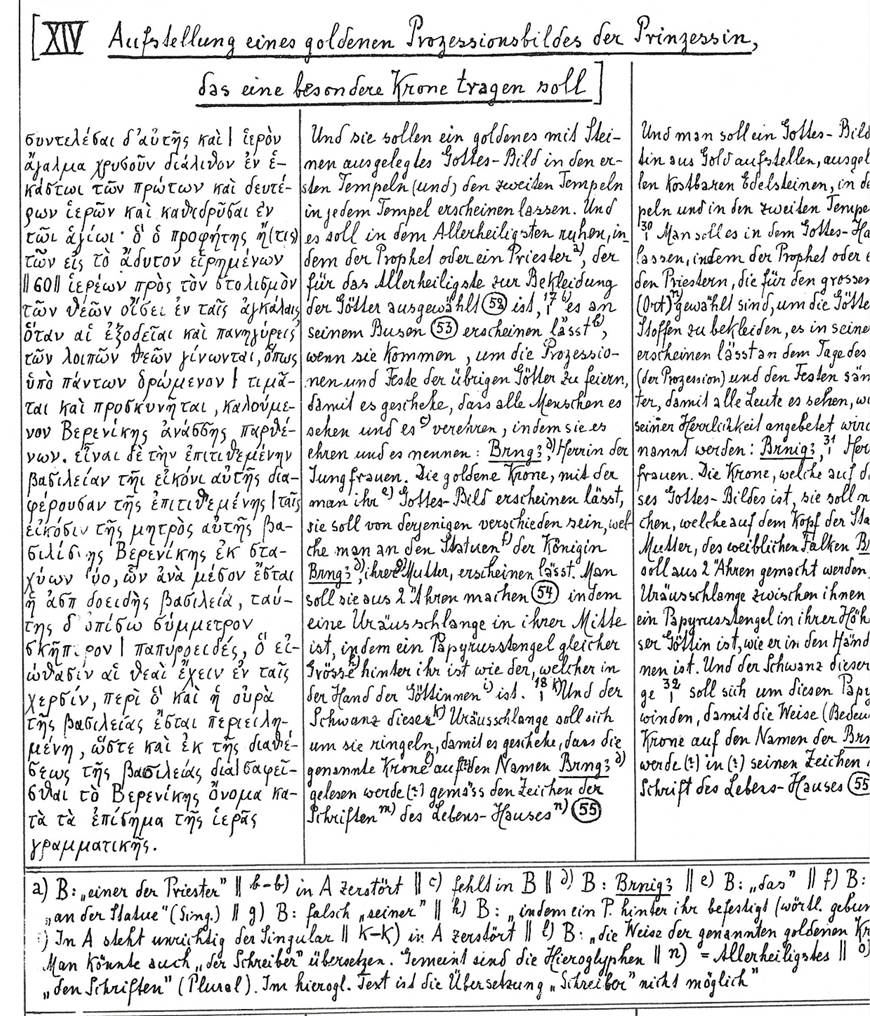 [XIV Aufstellung eines goldenen Prozessionsbildes der Prinzessin,
das eine besondere Krone tragen soll]
συντελέσαι δ'αὐτῆς καὶ | ἱερὸν
ἄγαλμα χρυσοῦν διάλιθον ἐν ἑ-
κάστωι τῶν πρώτων καὶ δευτέ-
ρων ἱερῶν καὶ καθιδρῦσαι ἐν
τῶι ἁγίωι· δ' ὁ προφήτης ἤ (τις)
τῶν εἰς τὸ ἄδυτον εἰρημένων
||60|| ἱερέων πρὸς τὸν στολισμὸν
τῶν θεῶν οἴσει ἐν ταῖς ἀγκάλαις
ὅταν αἱ ἐξοδεῖαι καὶ πανηγύρεις
τῶν λοιπῶν θεῶν γίνωνται, ὅπως
ὑπὸ πάντων ὁρώμενον | τιμᾶ-
ται καὶ προσκυνῆται, καλούμε-
νον Βερενίκης ἀνάσσης παρθέ-
νων. εἶναι δὲ τὴν ἐπιτιθεμένην
βασιλείαν τῆι εἰκόνι αὐτῆς δια-
φέρουσαν τῆς ἐπιτιθεμένης | ταῖς
εἰκόσιν τῆς μητρὸς αὐτῆς βα-
σιλίσσης Βερενίκης ἐκ στα-
χύων δύο, ὧν ἀνὰ μέσον ἔσται
ἡ ἀσπιδοειδὴς βασιλεία, ταύ-
της δ' ὀπίσω σύμμετρον
σκῆπτρον | παπυροειδές, ὃ εἰ-
ώθασιν αἱ θεαὶ ἔχειν ἐν ταῖς
χερσίν, περὶ ὃ καὶ ἡ οὐρὰ
τῆς βασιλείας ἔσται περιειλη-
μένη, ὥστε καὶ ἐκ τῆς διαθέ-
σεως τῆς βασιλείας διασαφεῖ-
σθαι τὸ Βερενίκης ὄνομα κα-
τὰ τὰ ἐπίσημα τῆς ἱερᾶς
γραμματικῆς.
Und sie sollen ein goldenes mit Stei-
nen ausgelegtes Gottes-Bild in den er-
sten Tempeln (und) den zweiten Tempeln
in jedem Tempel erscheinen lassen. Und
es soll in dem Allerheiligsten ruhen, in
dem der Prophet oder ein Priester a), der
für das Allerheiligste zur Bekleidung
der Götter ausgewählt (52) ist, 17 b) es an
seinem Busen (53) erscheinen lässt b),
wenn sie kommen, um die Prozessio-
nen und Feste der übrigen Götter zu feiern,
damit es geschehe, dass alle Menschen es
sehen und es c) verehren, indem sie es
ehren und es nennen: Brngꜣ d), Herrin der
Jungfrauen. Die goldene Krone, mit der
man ihr e) Gottes-Bild erscheinen lässt,
sie soll von derjenigen verschieden sein, wel-
che man an den Statuen f) der Königin
Brngꜣ d), ihrer g) Mutter, erscheinen lässt. Man
soll sie aus 2 Ähren machen (54) indem
eine Uräusschlange in ihrer Mitte
ist, indem ein Papyrusstengel gleicher
Grösse h) hinter ihr ist wie der, welcher in
der Hand der Göttinnen i) ist. 18 k) Und der
Schwanz dieser k) Uräusschlange soll sich
um sie ringeln, damit es geschehe, dass die
genannte Krone l) auf den Namen Brngꜣ d)
gelesen werde (?) gemäss den Zeichen der
Schriften m) des Lebens-Hauses n) (55)
Und man soll ein Gottes-Bild
tin aus Gold aufstellen, ausgel
len kostbaren Edelsteinen, in de
peln und in den zweiten Tempe
30 Man soll es in dem Gottes-Ha
lassen, indem der Prophet oder e
den Priestern, die für den grossen
(Ort) gewählt sind, um die Götte
Stoffen zu bekleiden, es in seine
erscheinen lässt an dem Tage des
(der Prozession) und den Festen säm
ter, damit alle Leute es sehen, w
seiner Herrlichkeit angebetet wird
nannt werden: Brnigꜣ, 31 Herr
frauen. Die Krone, welche auf d
ses Gottes-Bildes ist, sie soll n
chen, welche auf dem Kopf der Sta
Mutter, des weiblichen Falken B
soll aus 2 Ähren gemacht werden
Uräusschlange zwischen ihnen
ein Papyrusstengel in ihrer Höh
ser Göttin ist, wie er in den Händ
nen ist. Und der Schwanz dieser
ge 32 soll sich um diesen Papy
winden, damit die Weise (Bedeu
Krone auf den Namen der Brn
werde (?) in (?) seinen Zeichen
Schrift des Lebens-Hauses (55
a) B: „einer der Priester" || b-b) in A zerstört || c) fehlt in B || d) B: Brnigꜣ || e) B: „das" || f) B:
„an der Statue" (Sing.) || g) B: falsch „seiner" || h) B: „indem ein P. hinter ihr befestigt (wörtl. gebun
i) In A steht unrichtig der Singular || k-k) in A zerstört || l) B: „die Weise der genannten goldenen Kr
Man könnte auch „der Schreiber" übersetzen. Gemeint sind die Hieroglyphen || n) = Allerheiligstes || o)
„den Schriften" (Plural). Im hierogl. Text ist die Übersetzung „Schreiber" nicht möglich"